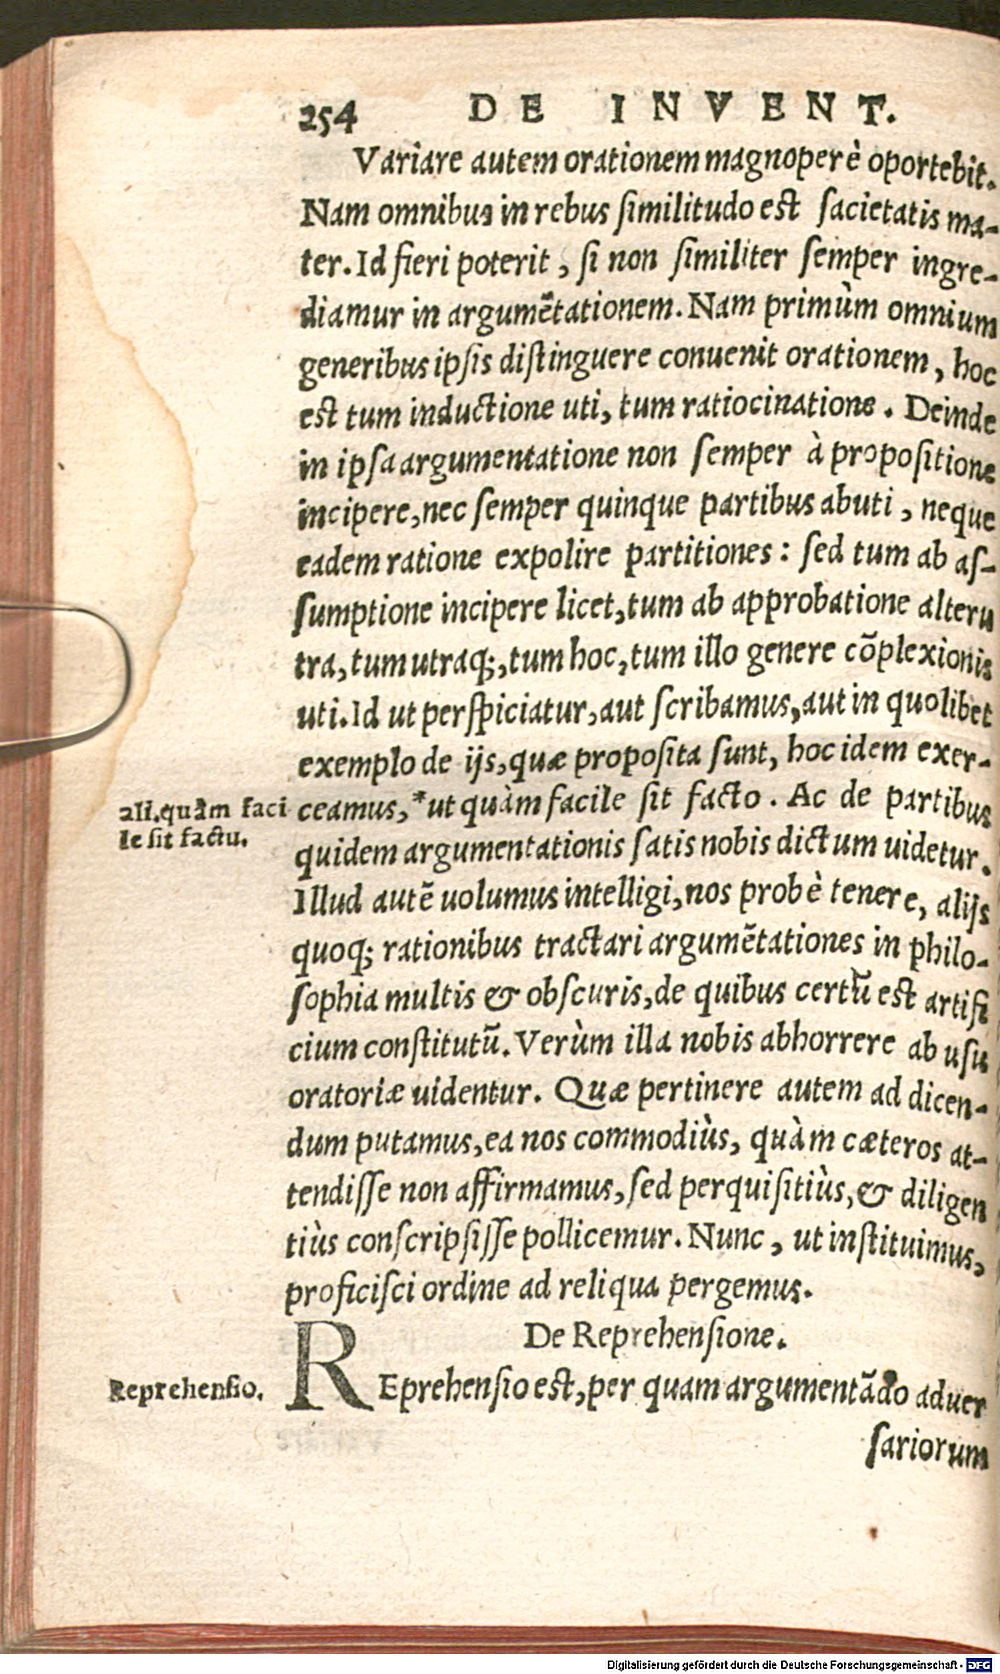 254 DE INVENT.
Variare autem orationem magnoperè oportebit.
Nam omnibus in rebus similitudo est sacietatis ma-
ter. Id fieri poterit, si non similiter semper ingre-
diamur in argumẽtationem. Nam primùm omnium
generibus ipsis distinguere conuenit orationem, hoc
est tum inductione uti, tum ratiocinatione. Deinde
in ipsa argumentatione non semper à propositione
incipere, nec semper quinque partibus abuti, neque
eadem ratione expolire partitiones: sed tum ab as-
sumptione incipere licet, tum ab approbatione alteru
tra, tum utraq;, tum hoc, tum illo genere cõplexionis
uti. Id ut perspiciatur, aut scribamus, aut in quolibet
exemplo de ijs, quæ proposita sunt, hoc idem exer-
ali. quàm faci
le sit factu.
ceamus, *ut quàm facile sit facto. Ac de partibus
quidem argumentationis satis nobis dictum uidetur.
Illud autẽ uolumus intelligi, nos probè tenere, alijs
quoq; rationibus tractari argumẽtationes in philo-
sophia multis & obscuris, de quibus certũ est artifi
cium constitutũ. Verùm illa nobis abhorrere ab usu
oratoriæ uidentur. Quæ pertinere autem ad dicen-
dum putamus, ea nos commodiùs, quàm cæteros at-
tendisse non affirmamus, sed perquisitiùs, & diligen
tiùs conscripsisse pollicemur. Nunc, ut instituimus,
proficisci ordine ad reliqua pergemus.
De Reprehensione.
Reprehensio.
REprehensio est, per quam argumentãdo aduer
sariorum
Digitalisierung gefördert durch die Deutsche Forschungsgemeinschaft - DFG